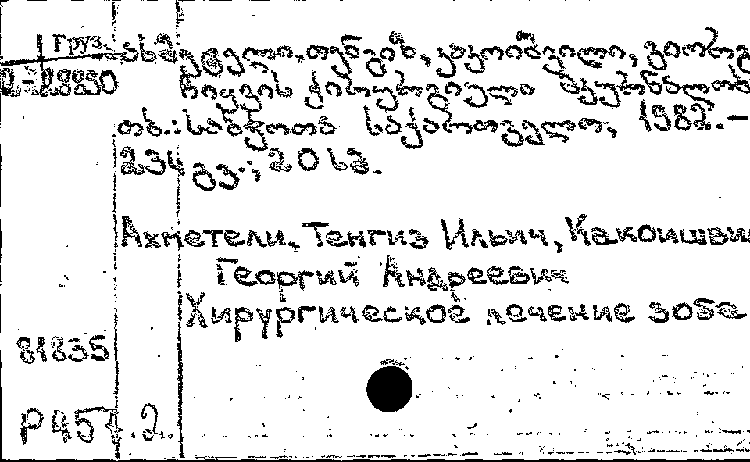 Груз. ახმეტელი, თენგიზ, კაკოიშვილი, გიორგ
2-28890 ჩიყვის ქირურგიული მკურნალობ
თბ.: საბჭოთა საქართველო, 1982. –
234 გვ.; 20 სმ.
Ахметели, Тенгиз Ильич, Какоишви
Георгий Андреевич
Хирургическое лечение зоба
81835
Р457.2.